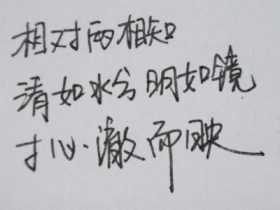 相对两相知
清如水兮明如镜
才心澈而映